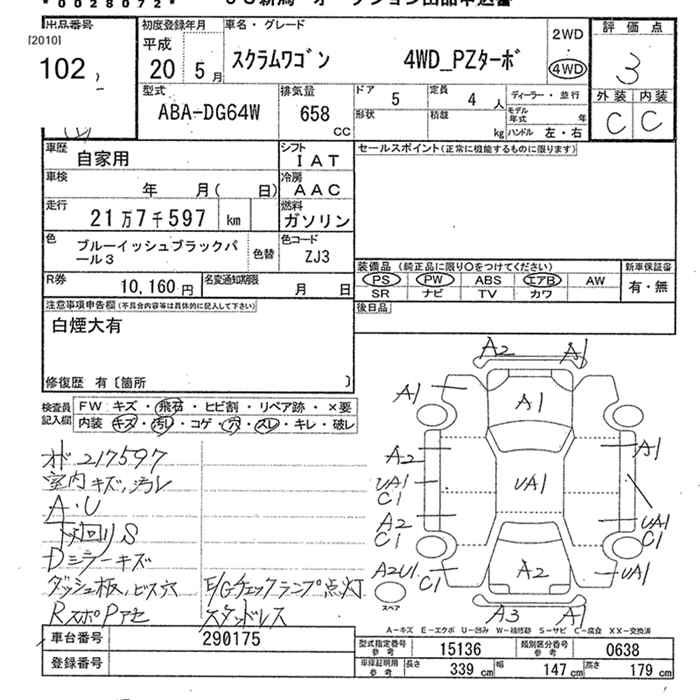 *0028072*
出品番号
[2010]
102
初度登録年月
平成
20 5月
車名・グレード
スクラムワゴン 4WD_PZターボ
2WD
・
4WD
評価点
3
外装 内装
C C
型式
ABA-DG64W
排気量
658
CC
ドア
5
定員
4人
形状
積載
kg
ディーラー・並行
モデル年式 年
ハンドル 左・右
車歴
自家用
シフト
IAT
セールスポイント(正常に機能するものに限ります)
車検
年 月( 日)
冷房
AAC
走行
21万7千597 km
燃料
ガソリン
色
ブルーイッシュブラックパ
ール3
色替
色コード
ZJ3
R券
10,160円
名変通知期限
月 日
装備品(純正品に限り○をつけてください)
PS PW ABS エアB AW
SR ナビ TV カワ
新車保証書
有・無
後日品
注意事項申告欄(不具合内容等は具体的に記入して下さい)
白煙大有
修復歴 有〔箇所 〕
検査員記入欄
FW:キズ・飛石・ヒビ割・リペア跡・×要
内装:キズ・汚レ・コゲ・穴・スレ・キレ・破レ
オド 217597
室内キズ,汚レ
A・U
下回りS
Dミラーキズ
ダッシュ板,ビス穴
E/Gチェックランプ点灯
RスポPアセ
スタッドレス
A2 A1
A1 A1
A2 A1
UA1 C1 UA1
A2 C1 UA1 C1
A2U1 C1 A2 UA1
スペア
A3 A1
A-キズ E-エクボ U-凹み W-補修跡 S-サビ C-腐食 XX-交換済
車台番号 290175
登録番号
型式指定番号 参考 15136
類別区分番号 参考 0638
車庫証明用 参考 長さ 339cm 幅 147cm 高さ 179cm